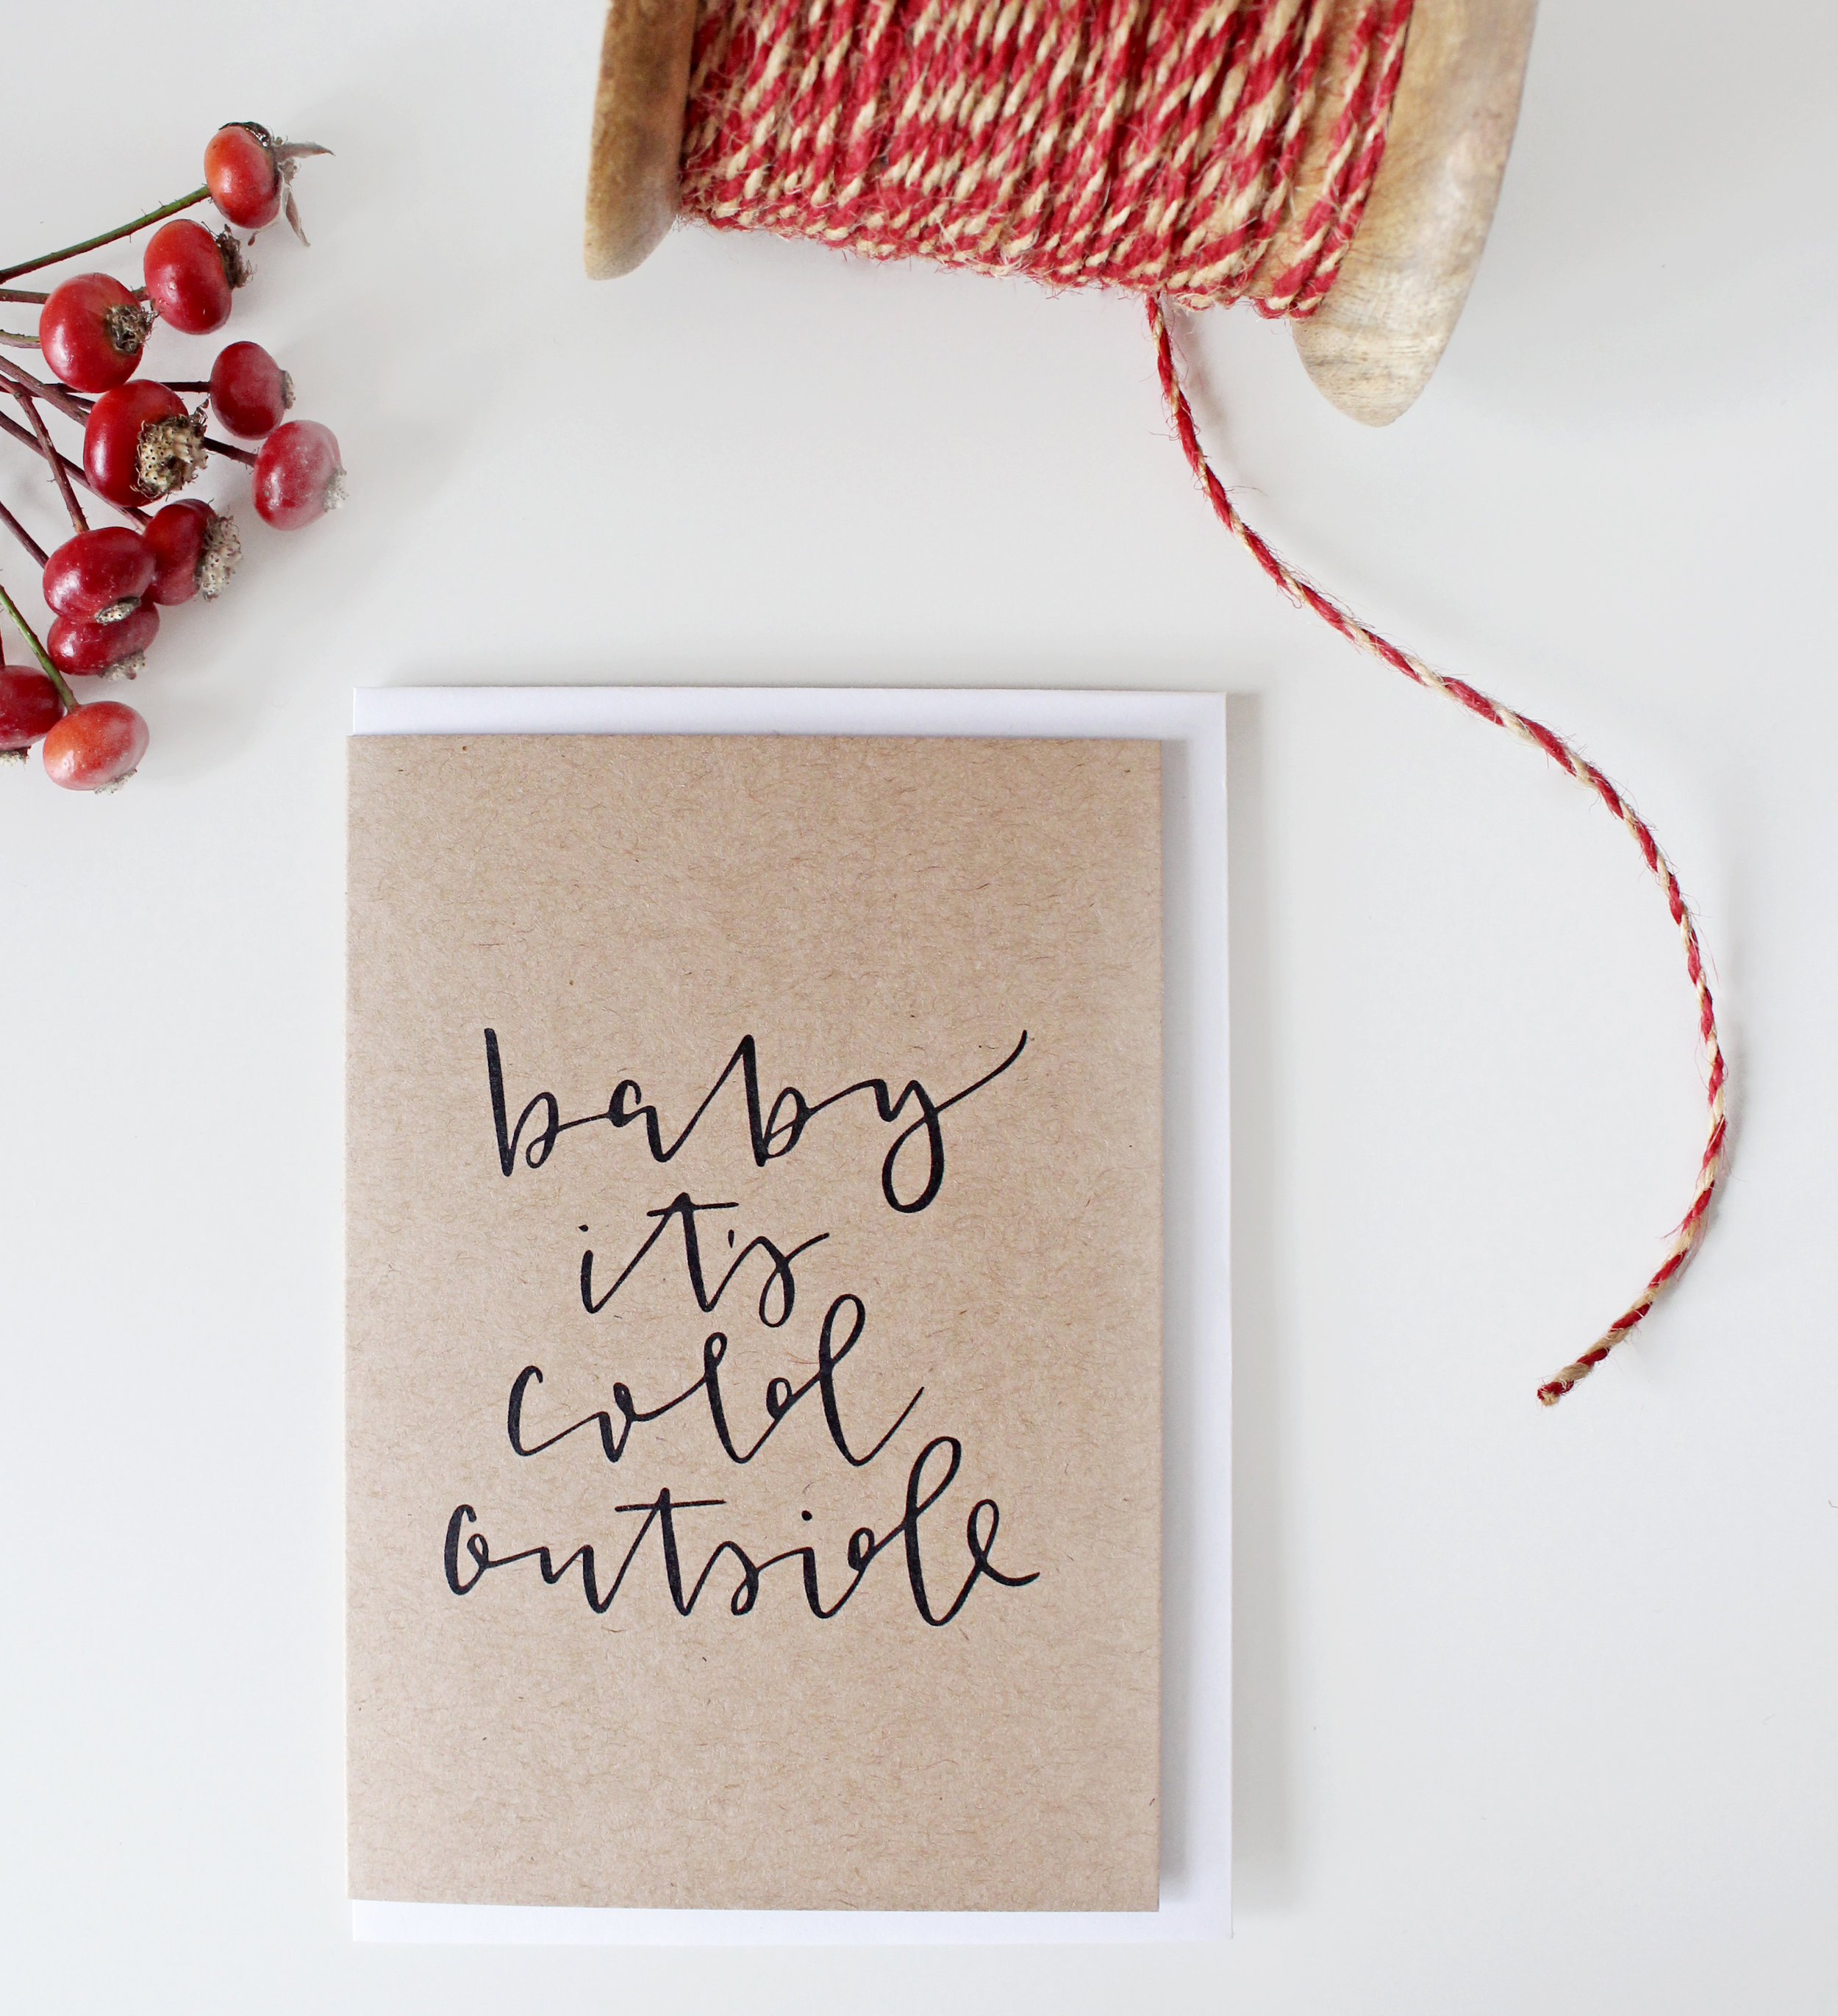 baby
it's
cold
outside